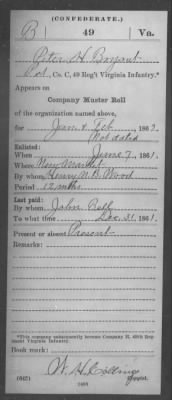 (CONFEDERATE.)
B 49 Va.
Peter H Bryant
Pvt, Co. C, 49 Reg't Virginia Infantry.*
Appears on
Company Muster Roll
of the organization named above,
for Jan. & Feb, 186
Not dated
Enlisted:
When June 7, 1861.
Where New Market
By whom Henry W. B. Wood
Period 12 mths
Last paid:
By whom John
To what time Dec. 31, 1861.
Present or absent Present
Remarks:
*This company subsequently became Company 49th Regiment Virginia Infantry.
Book mark:
W. H.
(642) Copyist.